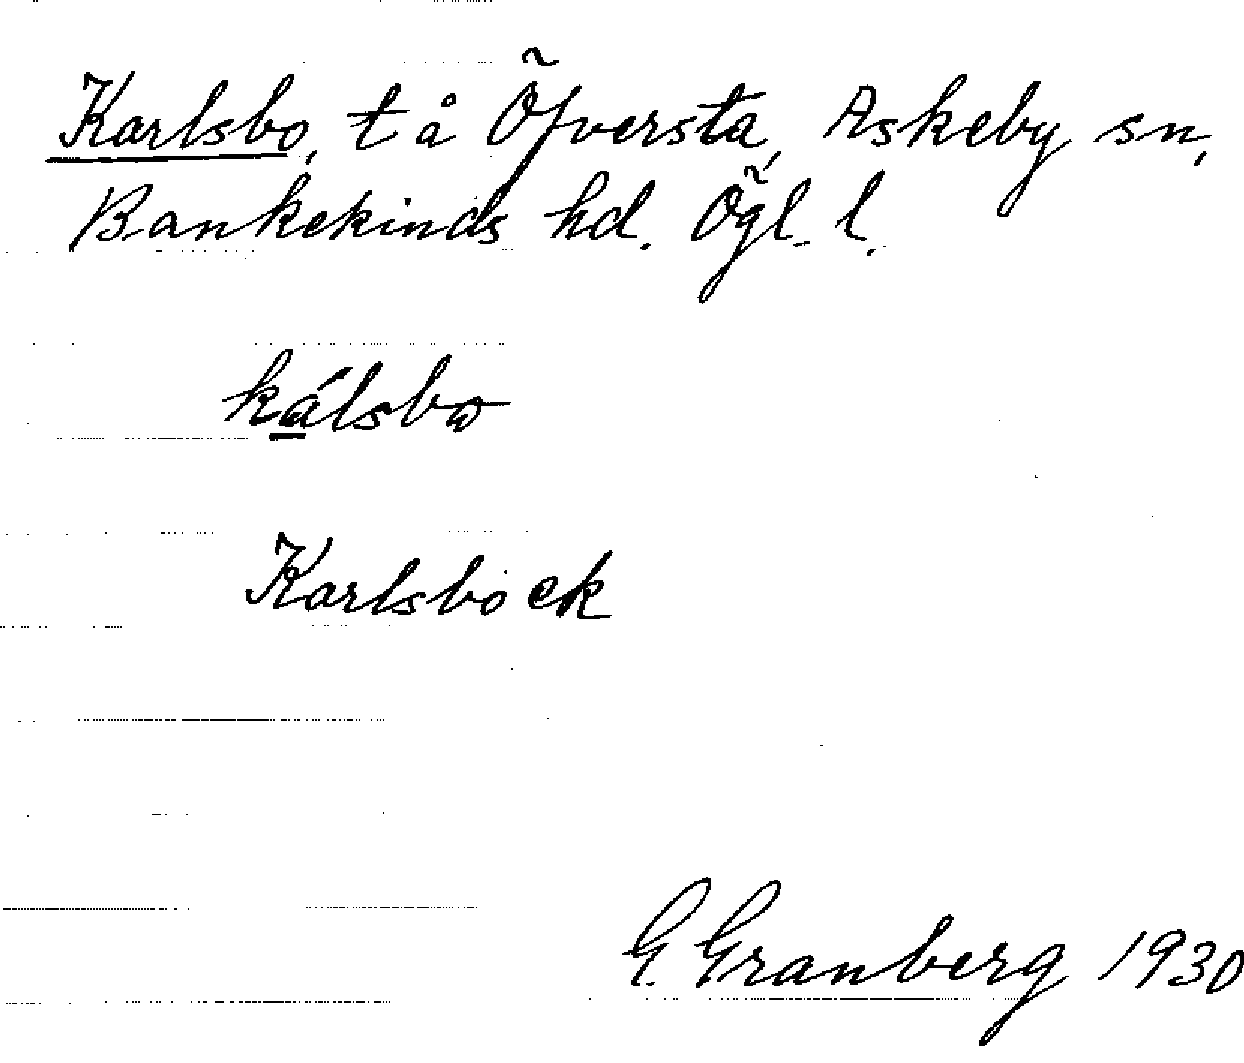 Karlsbo, t å Öfversta, Askeby sn,
Bankekinds hd. Ögl. l.
kálsbo
Karlsbo ek
G. Granberg 1930